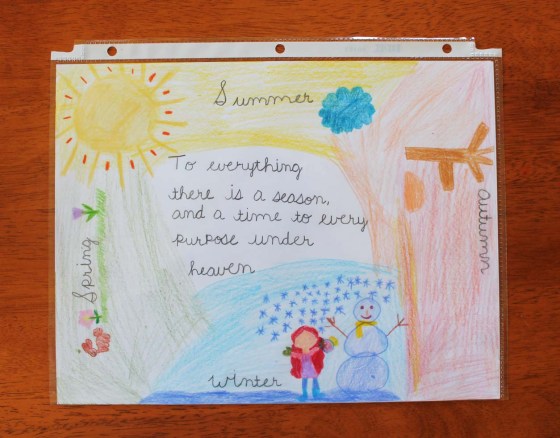 Summer
To everything
there is a season,
and a time to every
purpose under
heaven
Spring
Autumn
Winter